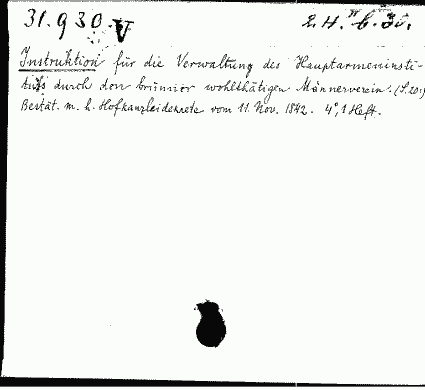 31.930.V 2.H."b.30.
Instruktion für die Verwaltung des Hauptarmeninsti-
tuts durch den brünner wohlthätigen Männerverein. (S.20)
Bestät. m. h. Hofkanzleidekrete vom 11. Nov. 1842. 4°, 1 Heft.